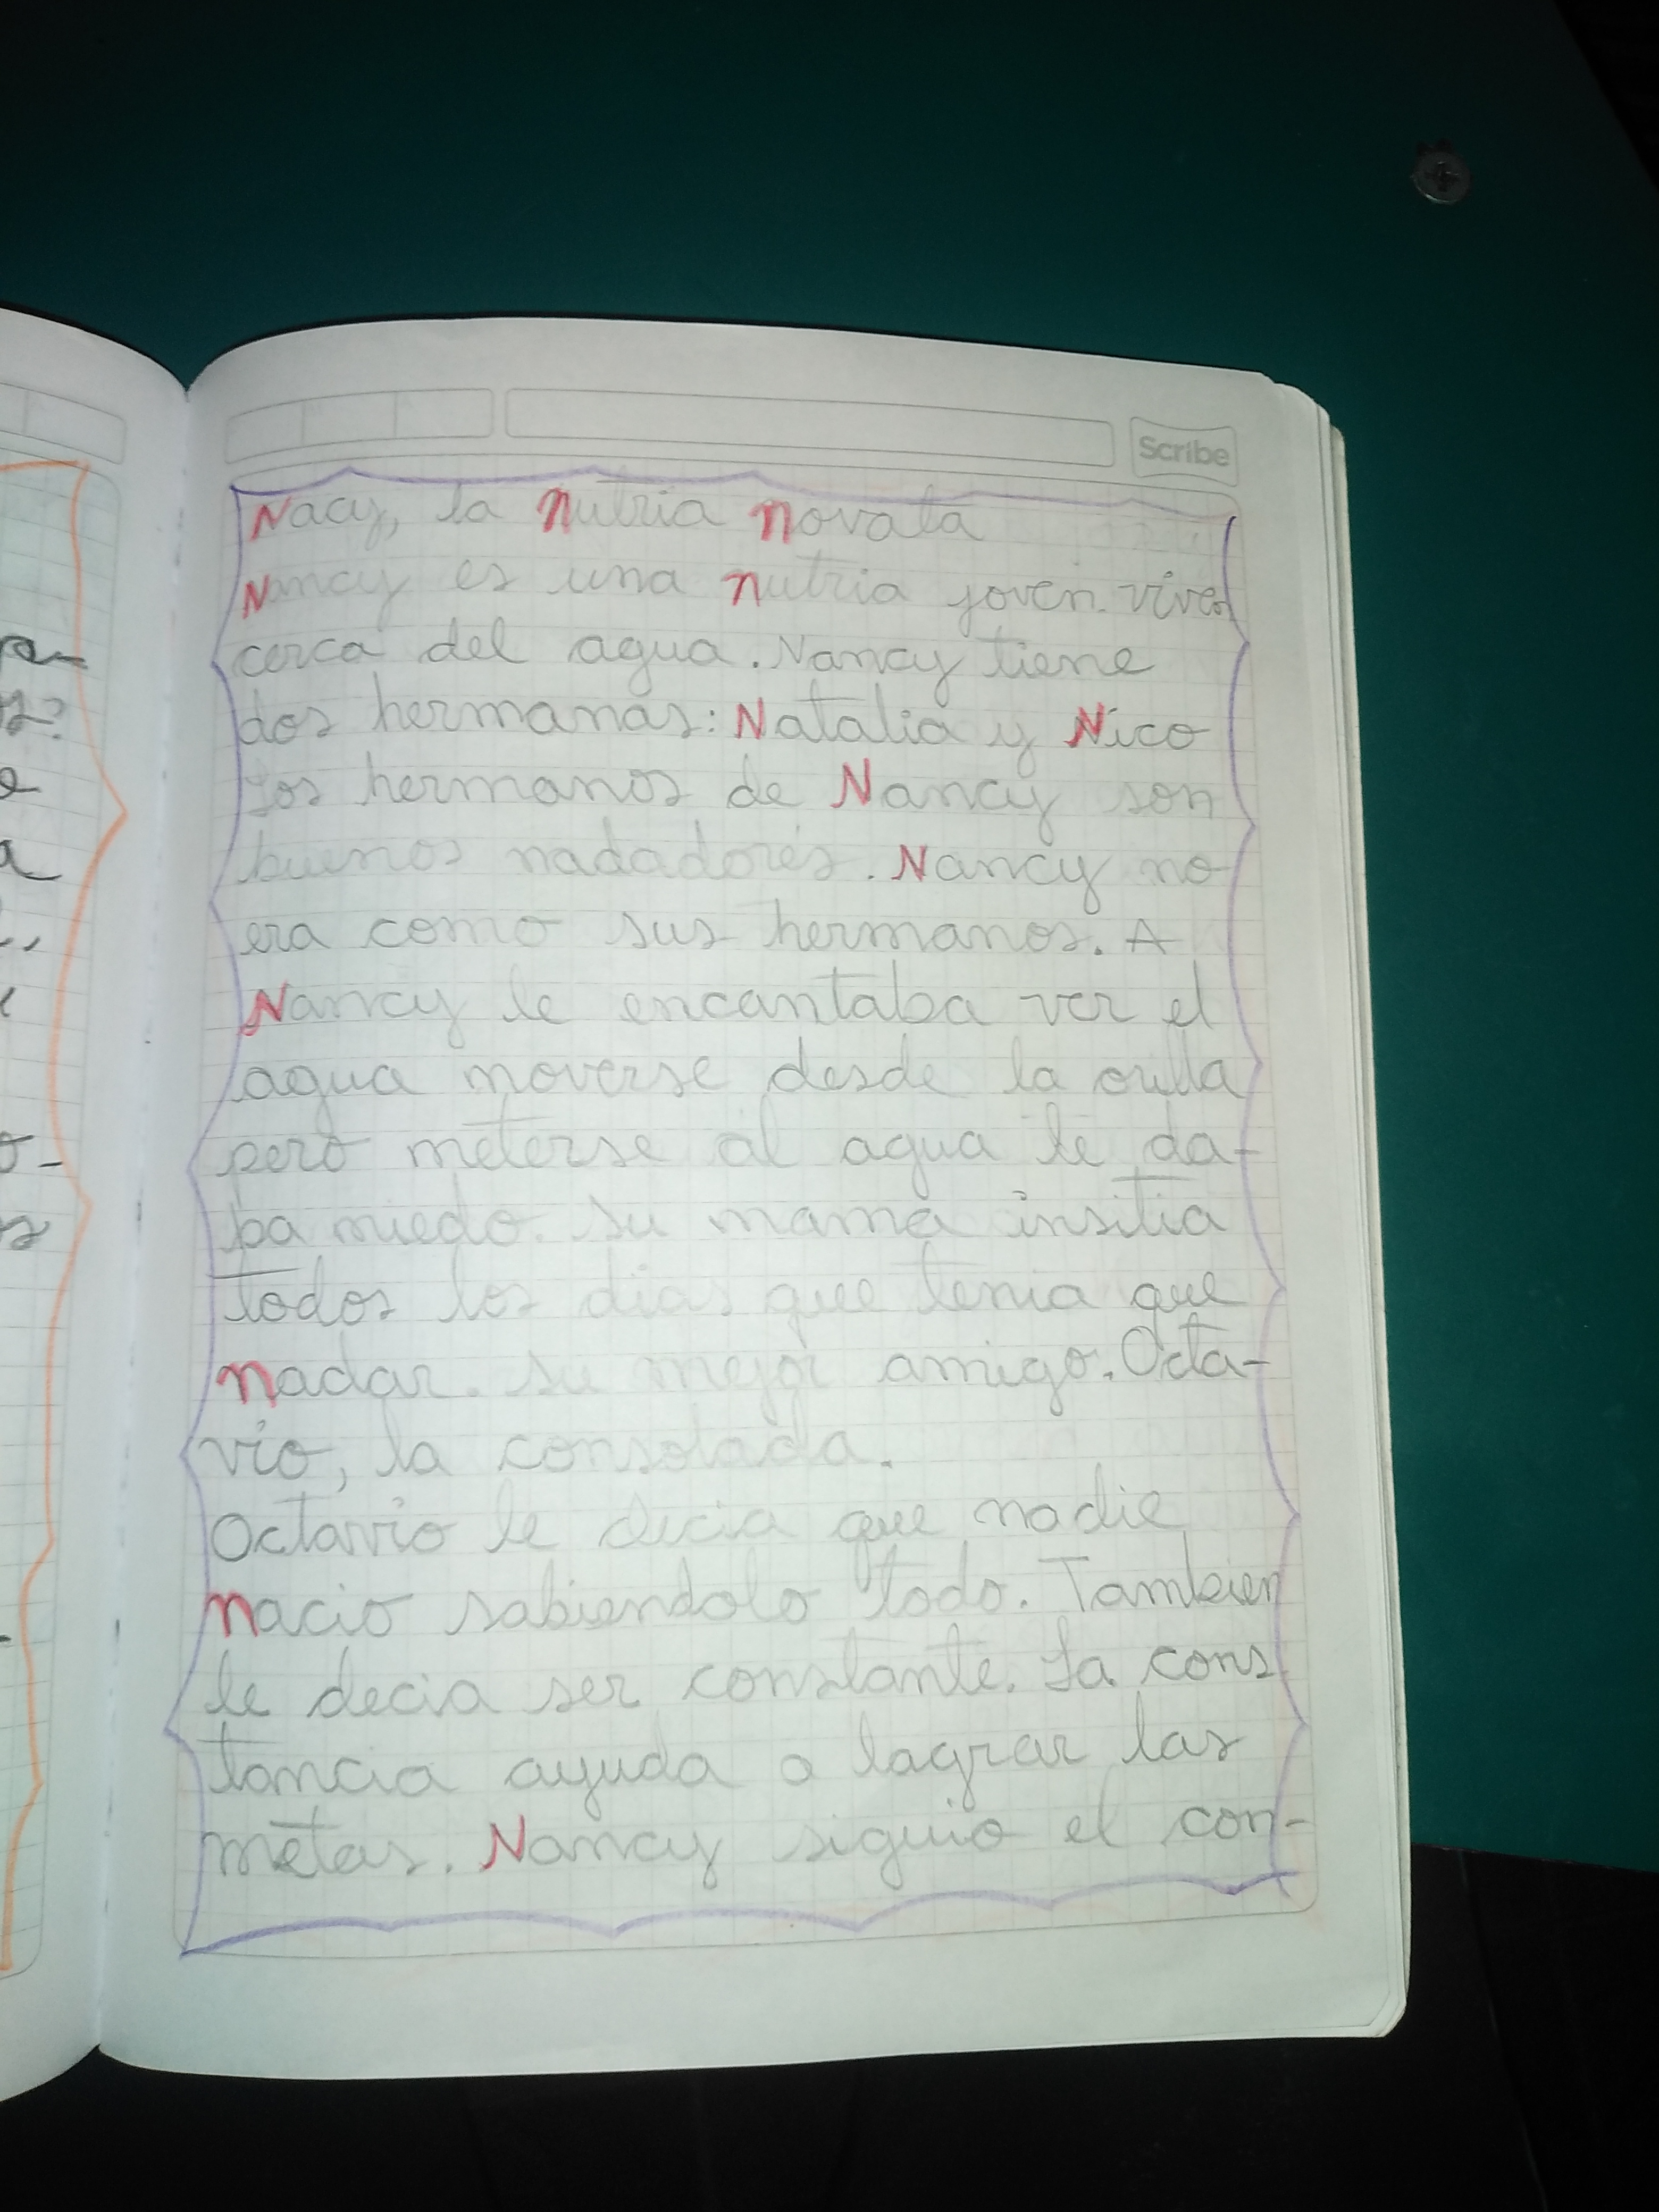 Scribe
Nacy, la nutria novata
Nancy es una nutria joven. vive
cerca del agua. Nancy tiene
dos hermanas: Natalia y Nico
Los hermanos de Nancy son
buenos nadadores. Nancy no
era como sus hermanos. A
Nancy le encantaba ver el
agua moverse desde la orilla
pero meterse al agua le da-
ba miedo. Su mama insitia
todos los dias que tenia que
nadar. Su mejor amigo. Octa-
vio, la consolada.
Octavio le decia que nadie
nacio sabiendolo todo. Tambien
le decia ser constante. La cons
tancia ayuda a lagrar las
metas. Nancy siguio el con-